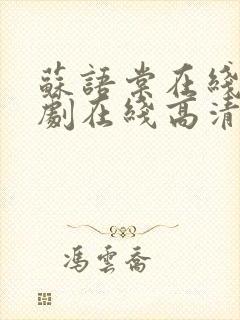 蘇語棠在綫
劇在綫高清
馮雲喬